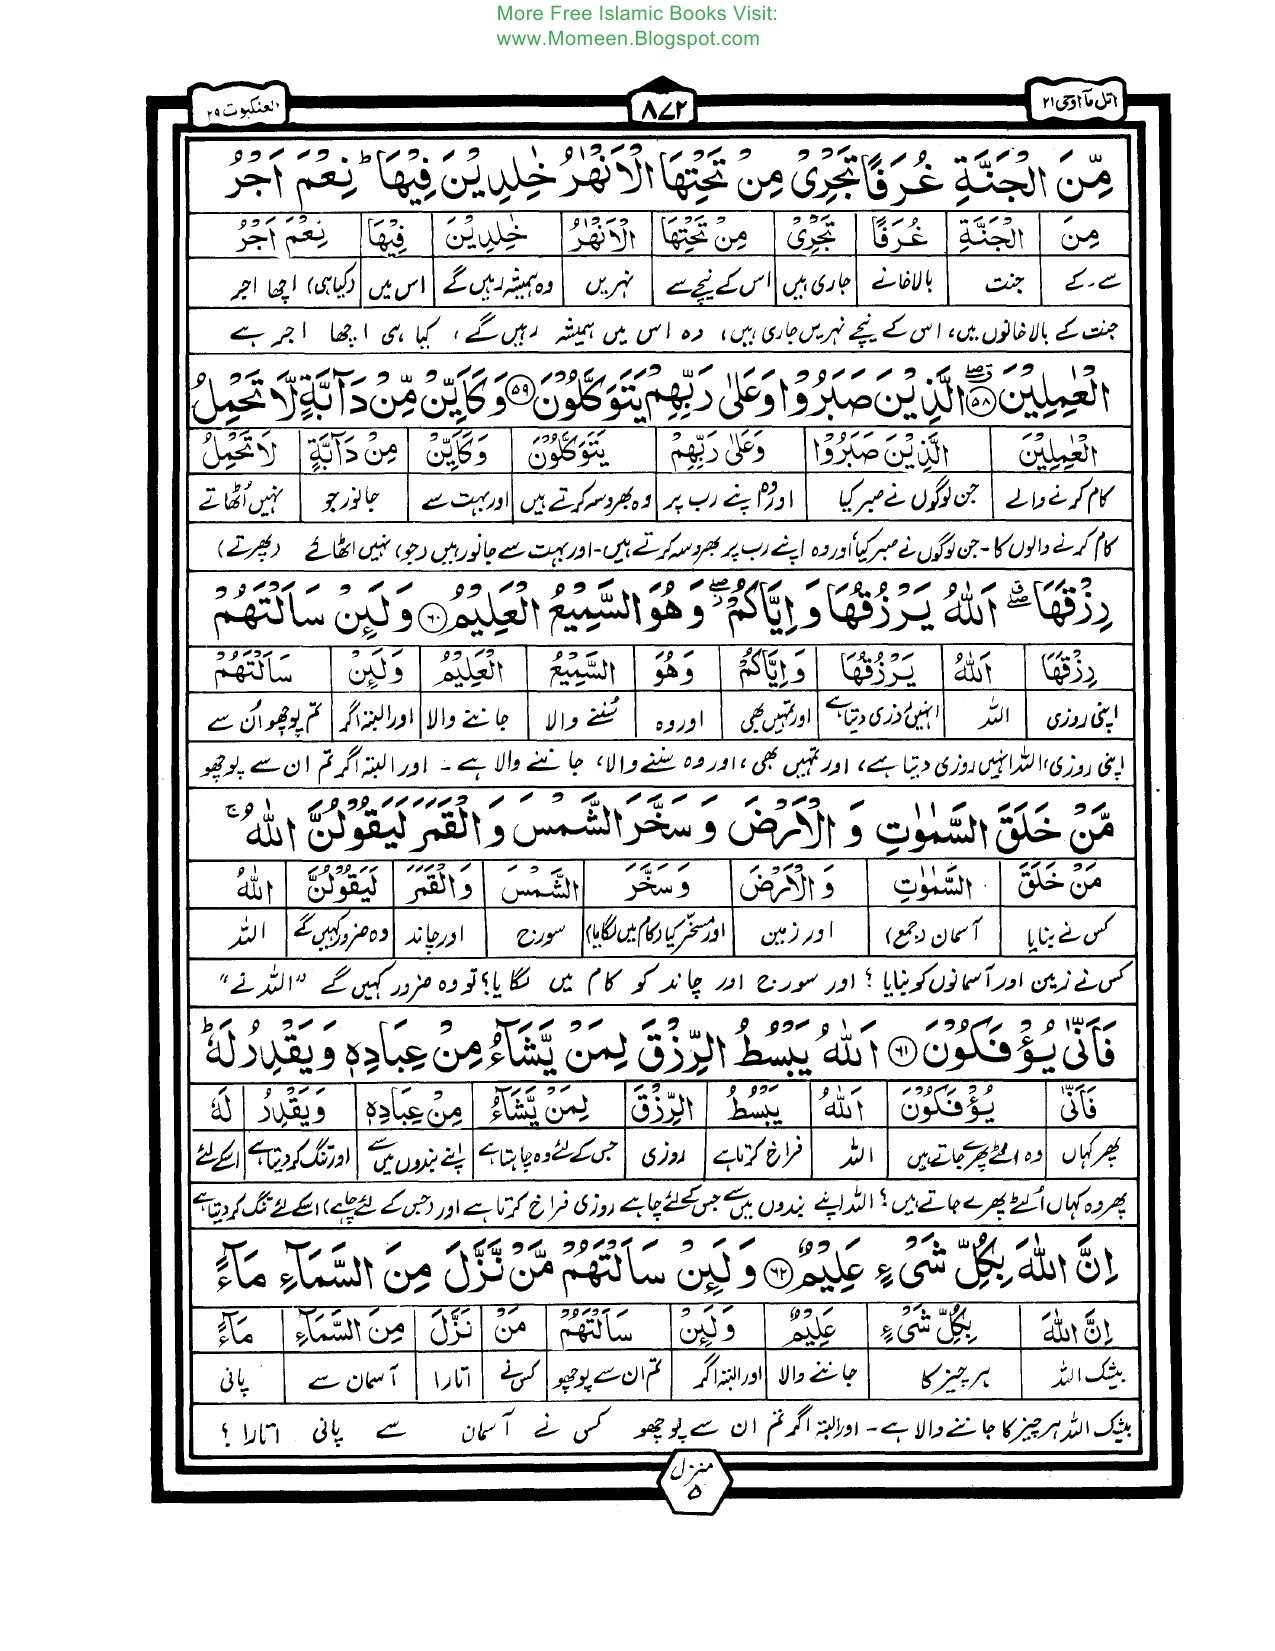 More Free Islamic Books Visit:
www.Momeen.Blogspot.com
اتل مآ اوحی ۲۱
۸۷۲
العنکبوت ۲۹
مِّنَ الْجَنَّةِ غُرَفًا تَجْرِیْ مِنْ تَحْتِهَا الْاَنْهٰرُ خٰلِدِیْنَ فِیْهَا ؕ نِعْمَ اَجْرُ
مِنَ الْجَنَّةِ غُرَفًا تَجْرِیْ مِنْ تَحْتِهَا الْاَنْهٰرُ خٰلِدِیْنَ فِیْهَا نِعْمَ اَجْرُ
سے۔کے جنت بالاخانے جاری ہیں اس کے نیچے سے نہریں وہ ہمیشہ رہیں گے اس میں (کیا ہی) اچھا اجر
جنت کے بالاخانوں میں، اس کے نیچے نہریں جاری ہیں، وہ اس میں ہمیشہ رہیں گے، کیا ہی اچھا اجر ہے
الْعٰمِلِیْنَ ۵۸ الَّذِیْنَ صَبَرُوْا وَعَلٰی رَبِّهِمْ یَتَوَكَّلُوْنَ ۵۹ وَكَاَیِّنْ مِّنْ دَآبَّةٍ لَّا تَحْمِلُ
الْعٰمِلِیْنَ الَّذِیْنَ صَبَرُوْا وَعَلٰی رَبِّهِمْ یَتَوَكَّلُوْنَ وَكَاَیِّنْ مِنْ دَآبَّةٍ لَا تَحْمِلُ
کام کرنے والے جن لوگوں نے صبر کیا اور وہ اپنے رب پر وہ بھروسہ کرتے ہیں اور بہت سے جانور جو نہیں اُٹھاتے
کام کرنے والوں کا۔ جن لوگوں نے صبر کیا اور وہ اپنے رب پر بھروسہ کرتے ہیں۔ اور بہت سے جانور ہیں (جو) نہیں اٹھائے (پھرتے)
رِزْقَهَا ۖ اَللّٰهُ یَرْزُقُهَا وَاِیَّاكُمْ ۖ وَهُوَ السَّمِیْعُ الْعَلِیْمُ ۶۰ وَلَئِنْ سَاَلْتَهُمْ
رِزْقَهَا اَللّٰهُ یَرْزُقُهَا وَاِیَّاكُمْ وَهُوَ السَّمِیْعُ الْعَلِیْمُ وَلَئِنْ سَاَلْتَهُمْ
اپنی روزی اللہ انہیں روزی دیتا ہے اور تمہیں بھی اور وہ سُننے والا جاننے والا اور البتہ اگر تم پوچھو اُن سے
اپنی روزی، اللہ انہیں روزی دیتا ہے، اور تمہیں بھی، اور وہ سننے والا، جاننے والا ہے۔ اور البتہ اگر تم ان سے پوچھو
مَّنْ خَلَقَ السَّمٰوٰتِ وَ الْاَرْضَ وَسَخَّرَ الشَّمْسَ وَ الْقَمَرَ لَیَقُوْلُنَّ اللّٰهُ ۚ
مَنْ خَلَقَ السَّمٰوٰتِ وَ الْاَرْضَ وَ سَخَّرَ الشَّمْسَ وَالْقَمَرَ لَیَقُوْلُنَّ اللّٰهُ
کس نے بنایا آسمان (جمع) اور زمین اور مسخر کیا (کام میں لگایا) سورج اور چاند وہ ضرور کہیں گے اللہ
کس نے زمین اور آسمانوں کو بنایا؟ اور سورج اور چاند کو کام میں لگایا؟ تو وہ ضرور کہیں گے "اللہ نے"
فَاَنّٰی یُؤْفَكُوْنَ ۶۱ اَللّٰهُ یَبْسُطُ الرِّزْقَ لِمَنْ یَّشَآءُ مِنْ عِبَادِهٖ وَیَقْدِرُ لَهٗ ؕ
فَاَنّٰی یُؤْفَكُوْنَ اَللّٰهُ یَبْسُطُ الرِّزْقَ لِمَنْ یَّشَآءُ مِنْ عِبَادِهٖ وَیَقْدِرُ لَهٗ
پھر کہاں وہ الٹے پھرے جاتے ہیں اللہ فراخ کرتا ہے روزی جس کے لئے وہ چاہتا ہے اپنے بندوں میں سے اور تنگ کر دیتا ہے اسکے لئے
پھر وہ کہاں اُلٹے پھرے جاتے ہیں؟ اللہ اپنے بندوں میں سے جس کے لئے چاہے روزی فراخ کرتا ہے اور (جس کے لئے چاہے) اسکے لئے تنگ کر دیتا ہے
اِنَّ اللّٰهَ بِكُلِّ شَیْءٍ عَلِیْمٌ ۶۲ وَلَئِنْ سَاَلْتَهُمْ مَّنْ نَّزَّلَ مِنَ السَّمَآءِ مَآءً
اِنَّ اللّٰهَ بِكُلِّ شَیْءٍ عَلِیْمٌ وَلَئِنْ سَاَلْتَهُمْ مَنْ نَزَّلَ مِنَ السَّمَآءِ مَآءً
بیشک اللہ ہر چیز کا جاننے والا اور البتہ اگر تم ان سے پوچھو کس نے اتارا آسمان سے پانی
بیشک اللہ ہر چیز کا جاننے والا ہے۔ اور البتہ اگر تم ان سے پوچھو کس نے آسمان سے پانی اتارا؟
منزل ۵